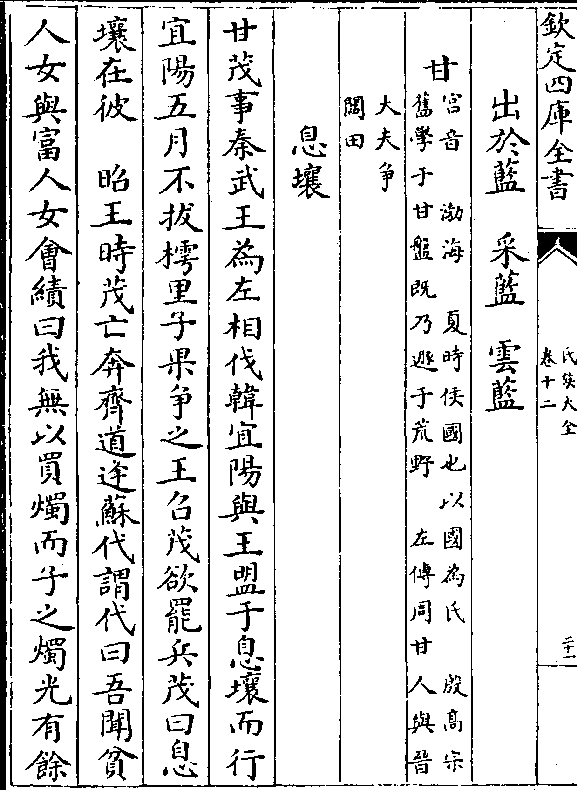 欽定四庫全書
氏族大全
卷十二
二十一
出於藍　采藍　雲藍
甘
宮音　渤海　夏時侯國也以國為氏　殷高宗
舊學于甘盤既乃遯于荒野　左傳周甘人與晉
大夫爭
閻田
息壤
甘茂事秦武王為左相伐韓宜陽與王盟于息壤而行
宜陽五月不拔樗里子果爭之王召茂欲罷兵茂曰息
壤在彼　昭王時茂亡奔齊道逢蘇代謂代曰吾聞貧
人女與富人女會績曰我無以買燭而子之燭光有餘